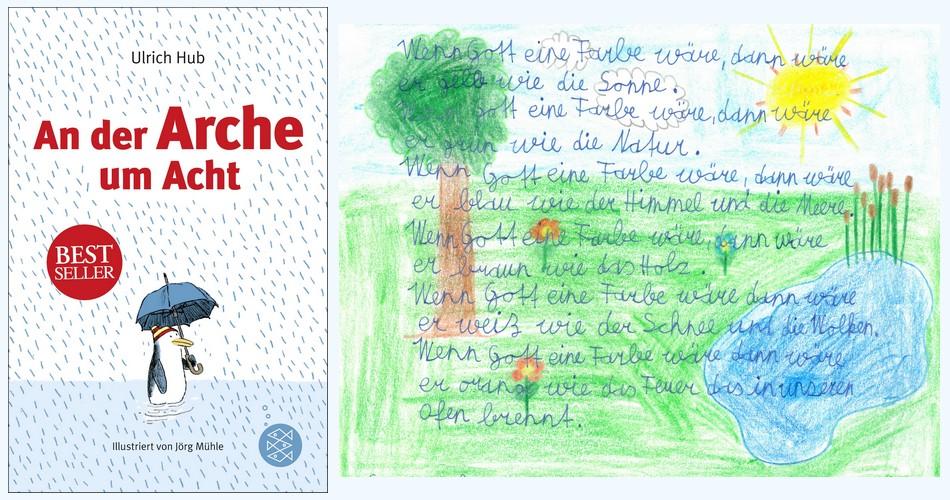 Ulrich Hub
An der Arche
um Acht
BEST
SELLER
Illustriert von Jörg Mühle
Wenn Gott eine Farbe wäre, dann wäre
er gelb wie die Sonne.
Wenn Gott eine Farbe wäre, dann wäre
er grün wie die Natur.
Wenn Gott eine Farbe wäre, dann wäre
er blau wie der Himmel und die Meere.
Wenn Gott eine Farbe wäre, dann wäre
er braun wie das Holz.
Wenn Gott eine Farbe wäre dann wäre
er weiß wie der Schnee und die Wolken.
Wenn Gott eine Farbe wäre dann wäre
er orange wie das Feuer das in unseren
Ofen brennt.